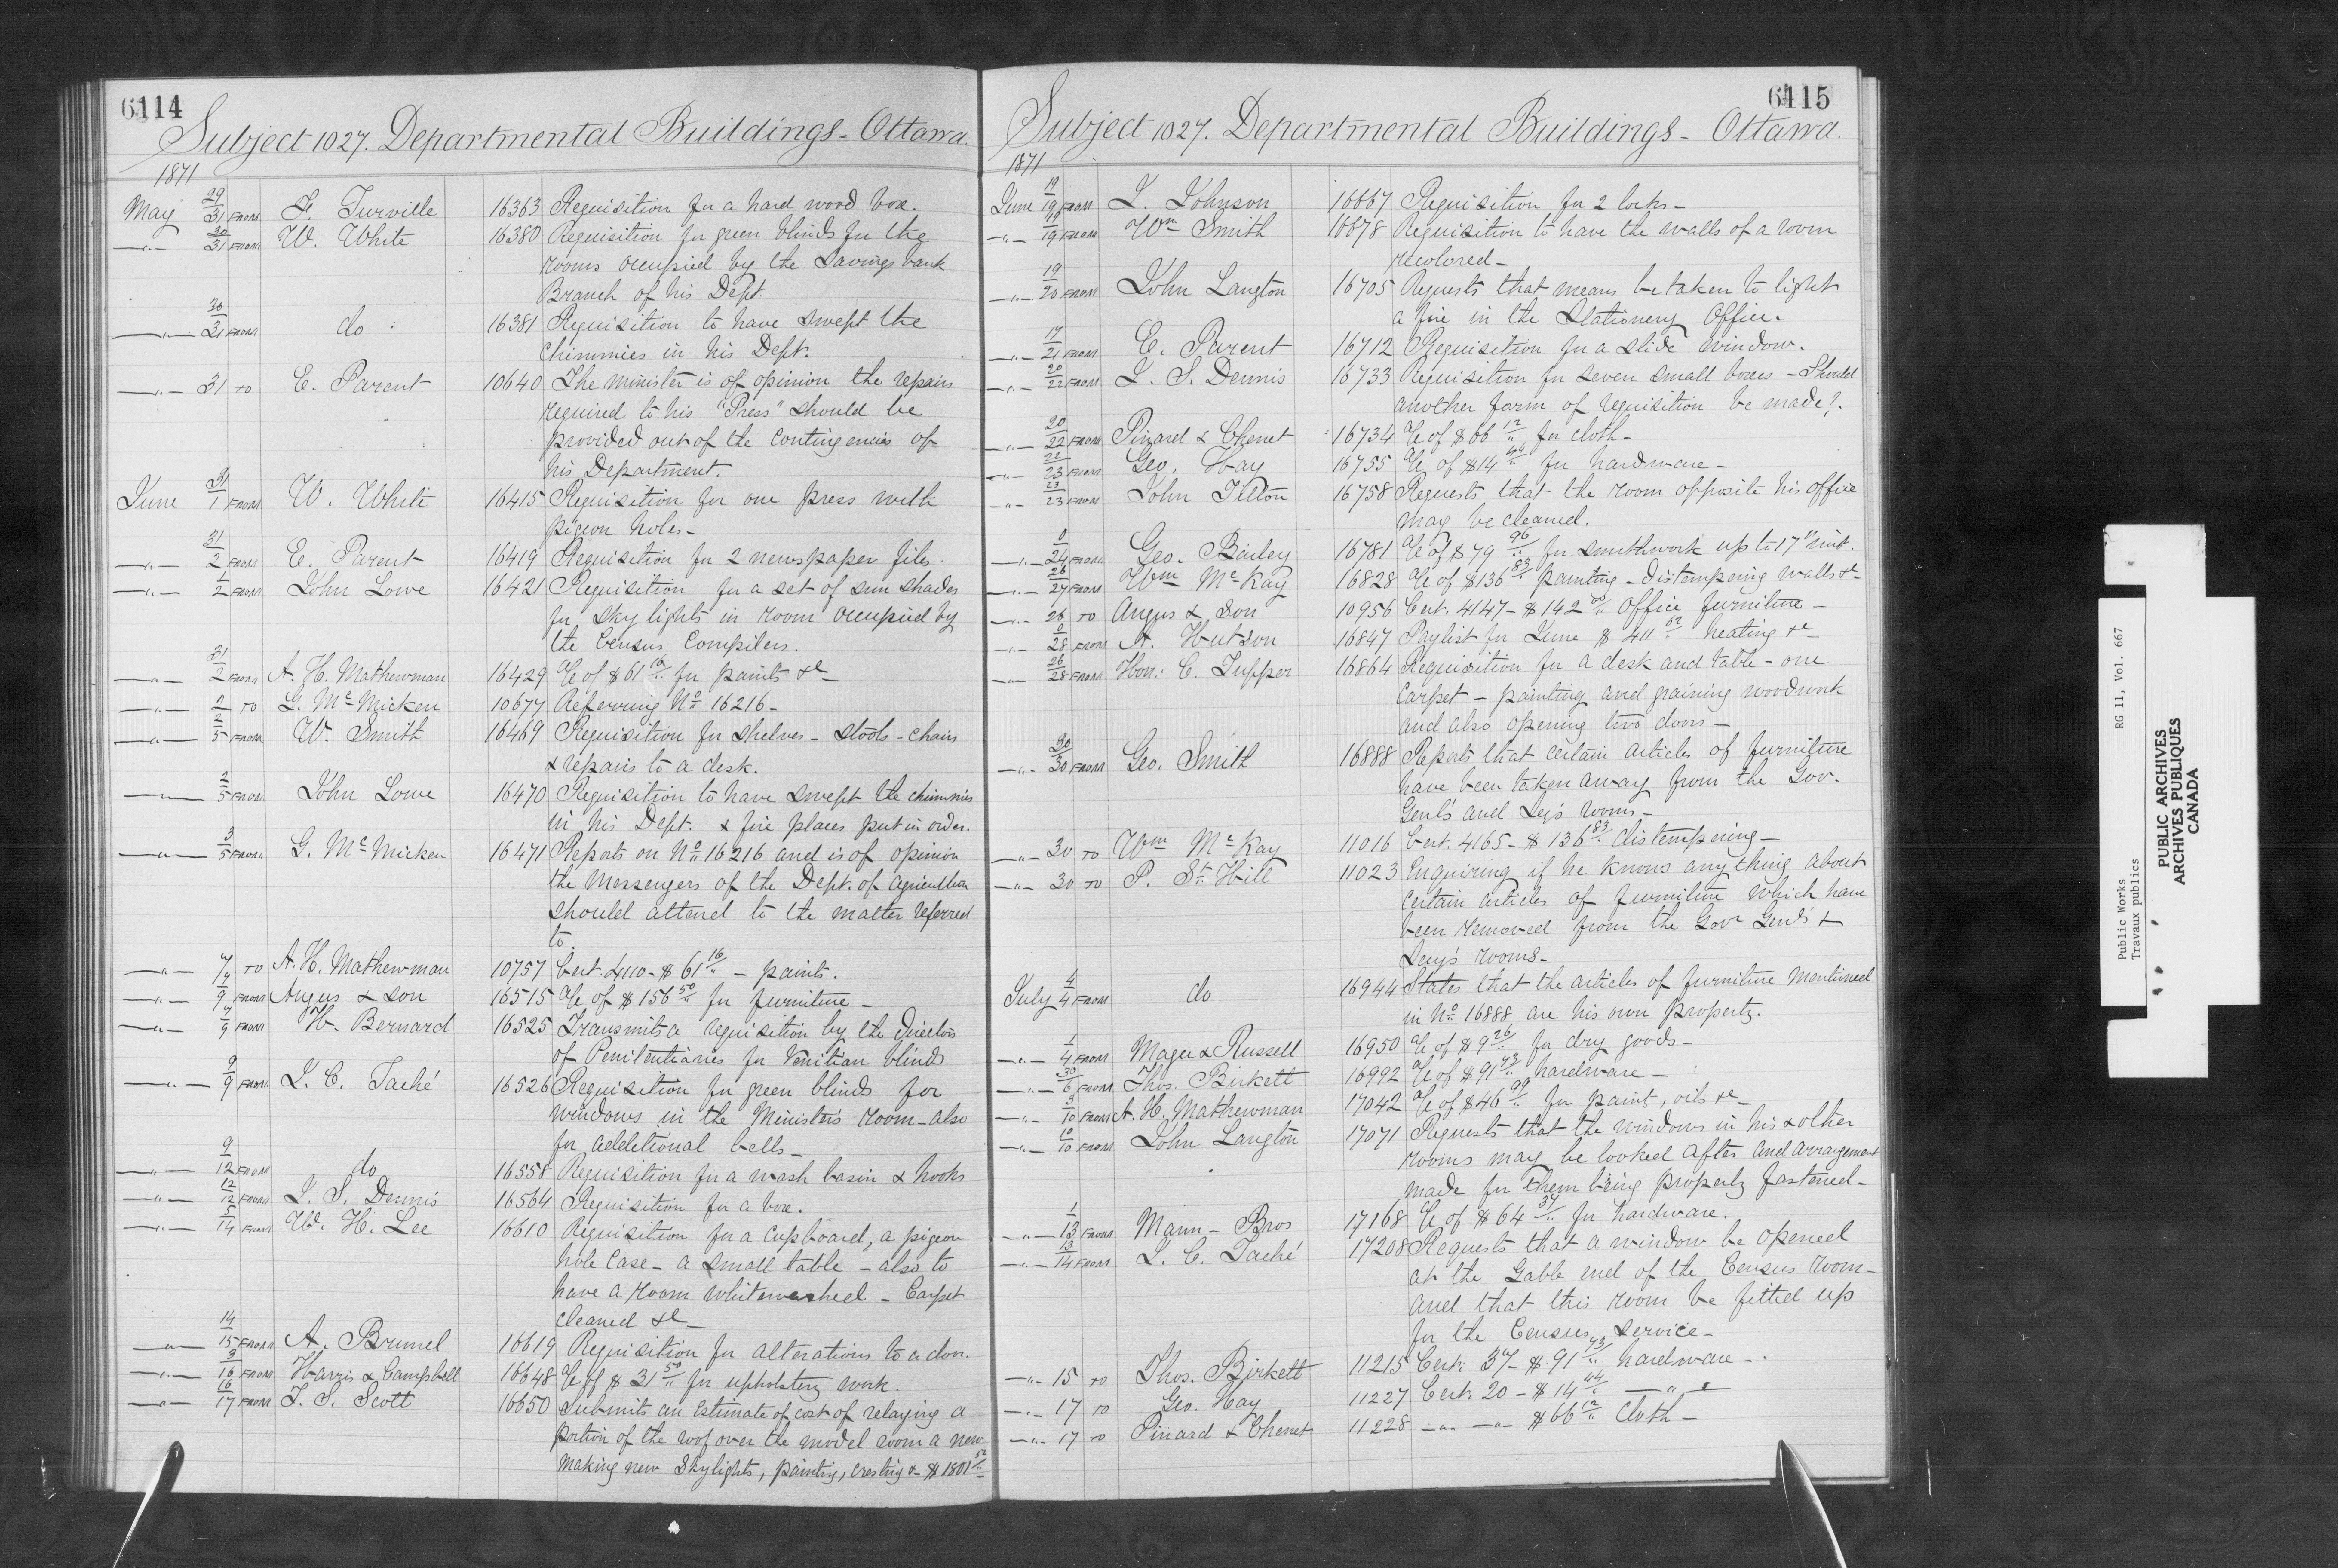 6114
Subject 1027. Departmental Buildings - Ottawa.
1871
May 29/31 FROM J. Turville 16363 Requisition for a hard wood box.
—"— 30/31 FROM W. White 16380 Requisition for green blinds for the
rooms occupied by the Savings bank
Branch of his Dept.
—"— 30/31 FROM do 16381 Requisition to have swept the
chimnies in his Dept.
—"— 31 TO E. Parent 10640 The minister is of opinion the repairs
required to his "Press" should be
provided out of the Contingencies of
his Department.
June 31/1 FROM W. White 16415 Requisition for one press with
pigeon holes -
—"— 31/2 FROM E. Parent 16419 Requisition for 2 newspaper files.
—"— 1/2 FROM John Lowe 16421 Requisition for a set of sun shades
for sky lights in room occupied by
the Census Compilers.
—"— 31/2 FROM A. H. Mathewman 16429 a/c of $61 16/" for paints &c -
—"— 2 TO G. McMicken 10677 Referring No 16216 -
—"— 2/5 FROM W. Smith 16469 Requisition for shelves - stools - chairs
& repairs to a desk.
—"— 2/5 FROM John Lowe 16470 Requisition to have swept the chimnies
in his Dept. & fire places put in order.
—"— 3/5 FROM G. McMicken 16471 Reports on No 16216 and is of opinion
the Messengers of the Dept. of Agriculture
should attend to the matter referred
to.
—"— 7 TO A. H. Mathewman 10757 Cert. 4110 - $61 16/" - paints.
—"— 7/9 FROM Angus & Son 16515 a/c of $156 50/" for furniture -
—"— 7/9 FROM H. Bernard 16525 Transmits a requisition by the Directors
of Penitentiaries for Venitian blinds
—"— 9/9 FROM J. C. Taché 16526 Requisition for green blinds for
windows in the Minister's room - also
for additional bells -
—"— 9/12 FROM do 16558 Requisition for a wash basin & hooks
—"— 12/12 FROM J. S. Dennis 16564 Requisition for a box.
—"— 5/14 FROM W. H. Lee 16610 Requisition for a Cupboard, a pigeon
hole Case - a small table - also to
have a room whitewashed - Carpet
cleaned &c -
—"— 14/15 FROM A. Brunel 16619 Requisition for alterations to a door.
—"— 3/16 FROM Harris & Campbell 16648 a/c of $31 50/" for upholstery work.
—"— 16/17 FROM T. S. Scott 16650 Submits an Estimate of cost of relaying a
portion of the roof over the model room a new
making new Skylights, painting, cresting &c - $1801 52/"
6115
Subject 1027. Departmental Buildings - Ottawa.
1871
June 19/19 FROM J. Johnson 16667 Requisition for 2 locks -
—"— 19/19 FROM Wm Smith 16678 Requisition to have the walls of a room
recolored -
—"— 19/20 FROM John Langton 16705 Requests that means be taken to light
a fire in the Stationery Office.
—"— 17/21 FROM E. Parent 16712 Requisition for a slide window.
—"— 20/22 FROM J. S. Dennis 16733 Requisition for seven small boxes - Should
another form of requisition be made?.
—"— 20/22 FROM Pinard & Chenet 16734 a/c of $66 12/" for cloth -
—"— 22/23 FROM Geo. Hay 16755 a/c of $14 44/" for hardware -
—"— 23/23 FROM John Tilton 16758 Requests that the room opposite his office
may be cleaned.
—"— 0/24 FROM Geo. Bailey 16781 a/c of $79 96/" for smithwork up to 17" inst.
—"— 26/27 FROM Wm McKay 16828 a/c of $136 83/" painting - distempering walls &c -
—"— 26 TO Angus & Son 10956 Cert. 4147 - $142 50/" office furniture -
—"— 0/28 FROM A. Hutson 16847 Paylist for June $411 62/" heating &c -
—"— 26/28 FROM Hon: C. Tupper 16864 Requisition for a desk and table - one
carpet - painting and graining woodwork
and also opening two doors -
—"— 30/30 FROM Geo. Smith 16888 Reports that certain articles of furniture
have been taken away from the Gov.
Genl's and Secy's rooms -
—"— 30 TO Wm McKay 11016 Cert. 4165 - $136 83/" distempering -
—"— 30 TO P. St Hill 11023 Enquiring if he knows anything about
certain articles of furniture which have
been removed from the Gov Genl's &
Secy's rooms -
July 4/4 FROM do 16944 States that the articles of furniture mentioned
in No 16888 are his own property.
—"— 1/4 FROM Magee & Russell 16950 a/c of $9 26/" for dry goods -
—"— 30/6 FROM Thos. Birkett 16992 a/c of $91 73/" hardware -
—"— 3/10 FROM A. H. Mathewman 17042 a/c of $46 99/" for paint, oils &c -
—"— 10/10 FROM John Langton 17071 Requests that the windows in his & other
rooms may be looked after and arrangement
made for them being properly fastened -
—"— 1/13 FROM Mann - Bros 17168 a/c of $64 37/" for hardware.
—"— 13/14 FROM J. C. Taché 17208 Requests that a window be opened
at the Gable end of the Census room -
and that this room be fitted up
for the Census service -
—"— 15 TO Thos. Birkett 11215 Cert. 37 - $91 73/" hardware -
—"— 17 TO Geo. Hay 11227 Cert. 20 - $14 44/" —"—
—"— 17 TO Pinard & Chenet 11228 —"— —"— $66 12/" Cloth -
Public Works RG 11, Vol. 667
Travaux publics
PUBLIC ARCHIVES
ARCHIVES PUBLIQUES
CANADA